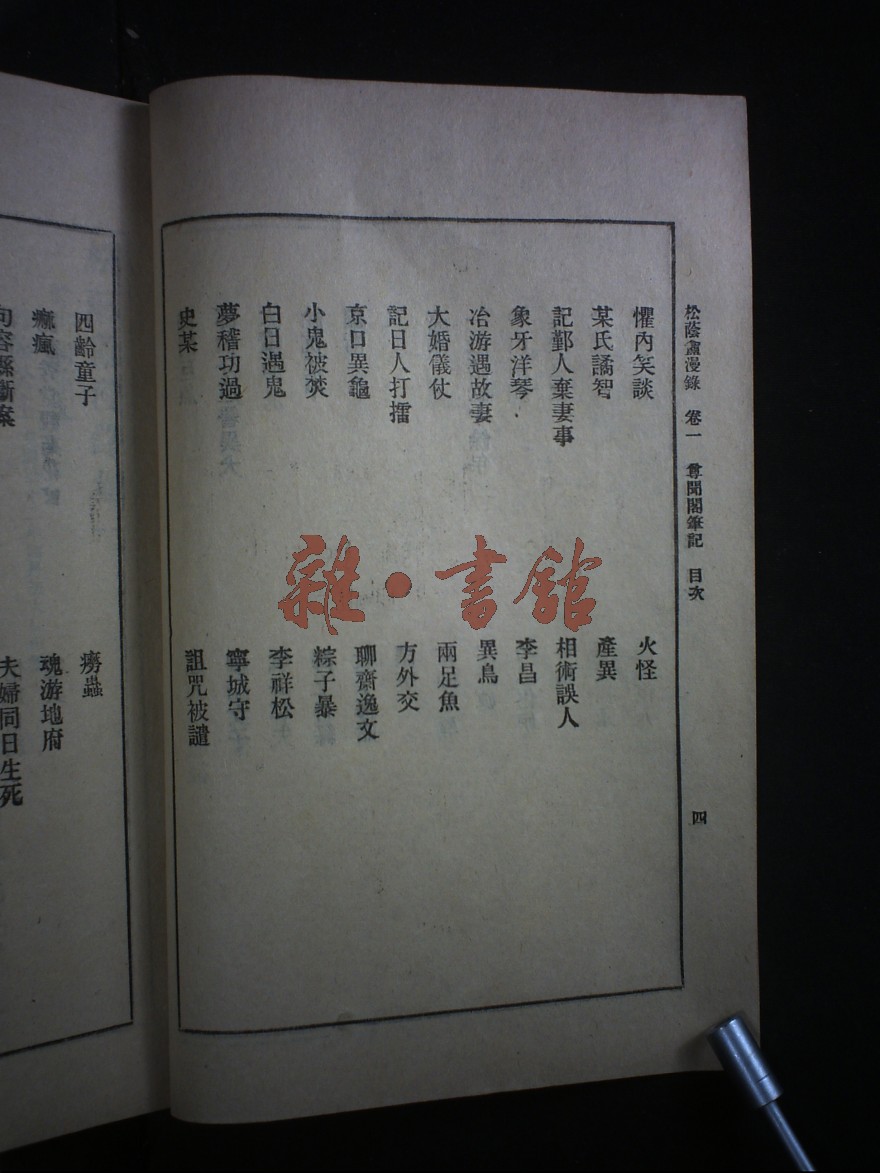 松蔭盦漫錄 卷一 尊聞閣筆記 目次 四
懼內笑談 火怪
某氏譎智 產異
記鄞人棄妻事 相術誤人
象牙洋琴 李昌
冶游遇故妻 異鳥
大婚儀仗 兩足魚
記日人打擂 方外交
京口異龜 聊齋逸文
小鬼被焚 粽子暴
白日遇鬼 李祥松
夢稽功過 寧城守
史某 詛咒被譴
四齡童子 癆蟲
瘋 魂游地府
句容縣斷案 夫婦同日生死
雜·書館